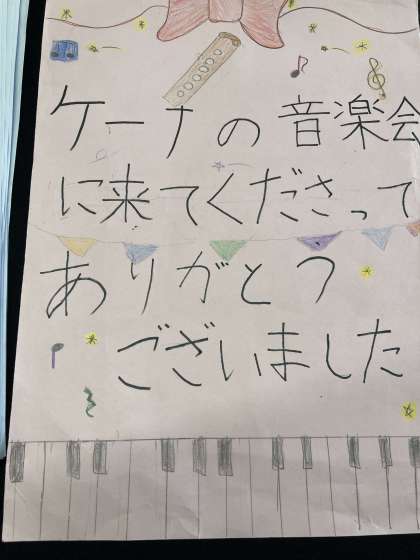 ケーナの音楽会
に来てくださって
ありがとう
ございました